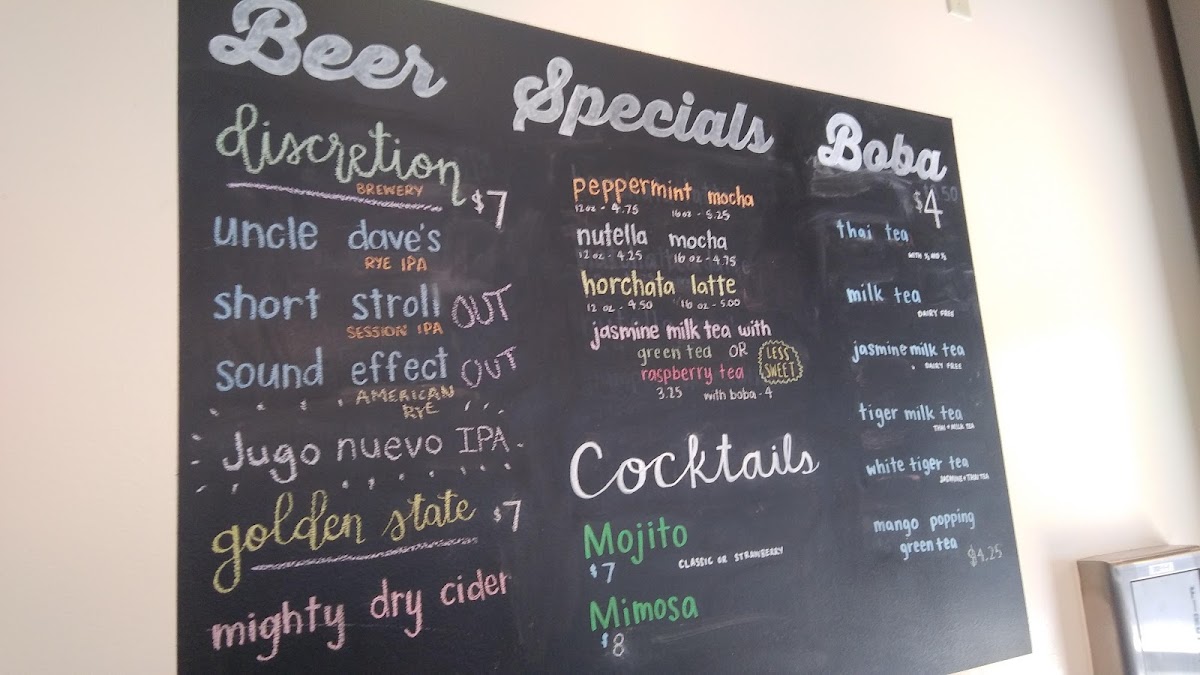 Beer
discretion
BREWERY
$7
uncle dave's
RYE IPA
short stroll OUT
SESSION IPA
sound effect OUT
AMERICAN
RYE
Jugo nuevo IPA
golden state $7
mighty dry cider
Specials
peppermint mocha
12oz - 4.75 16oz - 5.25
nutella mocha
12 oz - 4.25 16 oz - 4.75
horchata latte
12 oz - 4.50 16 oz - 5.00
jasmine milk tea with
green tea OR
raspberry tea
LESS
SWEET
3.25 with boba - 4
Cocktails
Mojito
$7 CLASSIC OR STRAWBERRY
Mimosa
$8
Boba
$4
thai tea
milk tea
DAIRY FREE
jasmine milk tea
DAIRY FREE
tiger milk tea
THAI + MILK TEA
white tiger tea
JASMINE + THAI TEA
mango popping
green tea $4.25